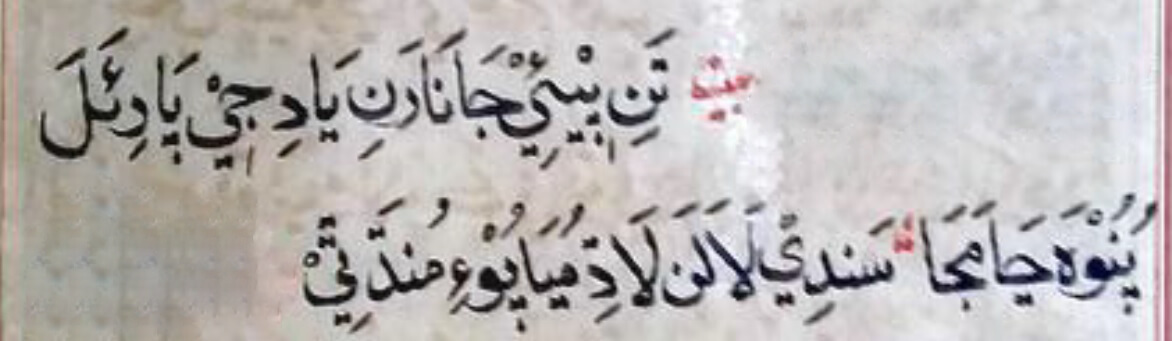 تَنِ بِيْئِيْ جَا نَارَنِ يَادِ جِيْ يَادِئَلَ
پُنُوْهَ جَامَ جَا سَندِيْ لَالَنَ لَادِّ مُيَا پُوْءِ مُندَ تِيْ